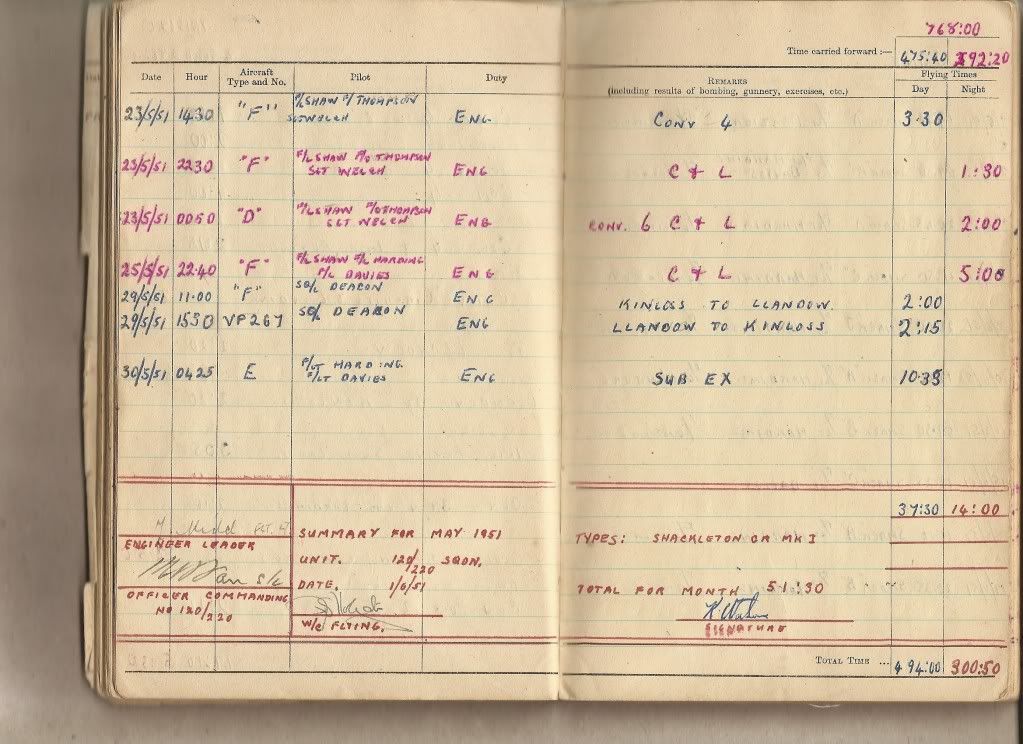 768:00
Time carried forward :— 475:40 292:20
Date Hour Aircraft Type and No. Pilot Duty REMARKS (including results of bombing, gunnery, exercises, etc.) Flying Times Day Night
23/5/51 1430 "F" F/L SHAW P/O THOMPSON ENG CONV 4 3·30
SGT WELCH
23/5/51 2230 "F" F/L SHAW P/O THOMPSON ENG C & L 1:30
SGT WELCH
23/5/51 0050 "D" F/L SHAW P/O THOMPSON ENG CONV. 6 C & L 2:00
SGT WELCH
25/5/51 22·40 "F" F/L SHAW F/L HARDING ENG C & L 5:00
F/L DAVIES
29/5/51 11·00 "F" SQ/L DEACON ENG KINLOSS TO LLANDOW. 2:00
29/5/51 1530 VP267 SQ/L DEACON ENG LLANDOW TO KINLOSS 2:15
30/5/51 0425 E F/LT HARDING. ENG SUB EX
F/LT DAVIES
37:30 14:00
FLT LT
ENGINEER LEADER
S/L
OFFICER COMMANDING
NO 120/220
SUMMARY FOR MAY 1951
UNIT. 120/220 SQDN.
DATE. 1/6/51
W/C FLYING.
TYPES: SHACKLETON GR MK I
TOTAL FOR MONTH 51:30
SIGNATURE
TOTAL TIME ... 494:00 300:50